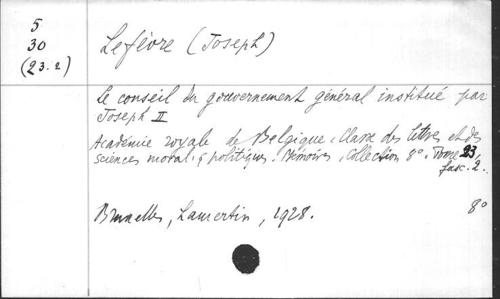 5
30
(23.2)
Lefèvre (Joseph)
Le conseil du gouvernement général institué par
Joseph II
Académie royale de Belgique. Classe des lettres et des
sciences moral. & politiques. Mémoires, Collection 8°. Tome 23,
fasc. 2.
Bruxelles, Lamertin, 1928.
8°